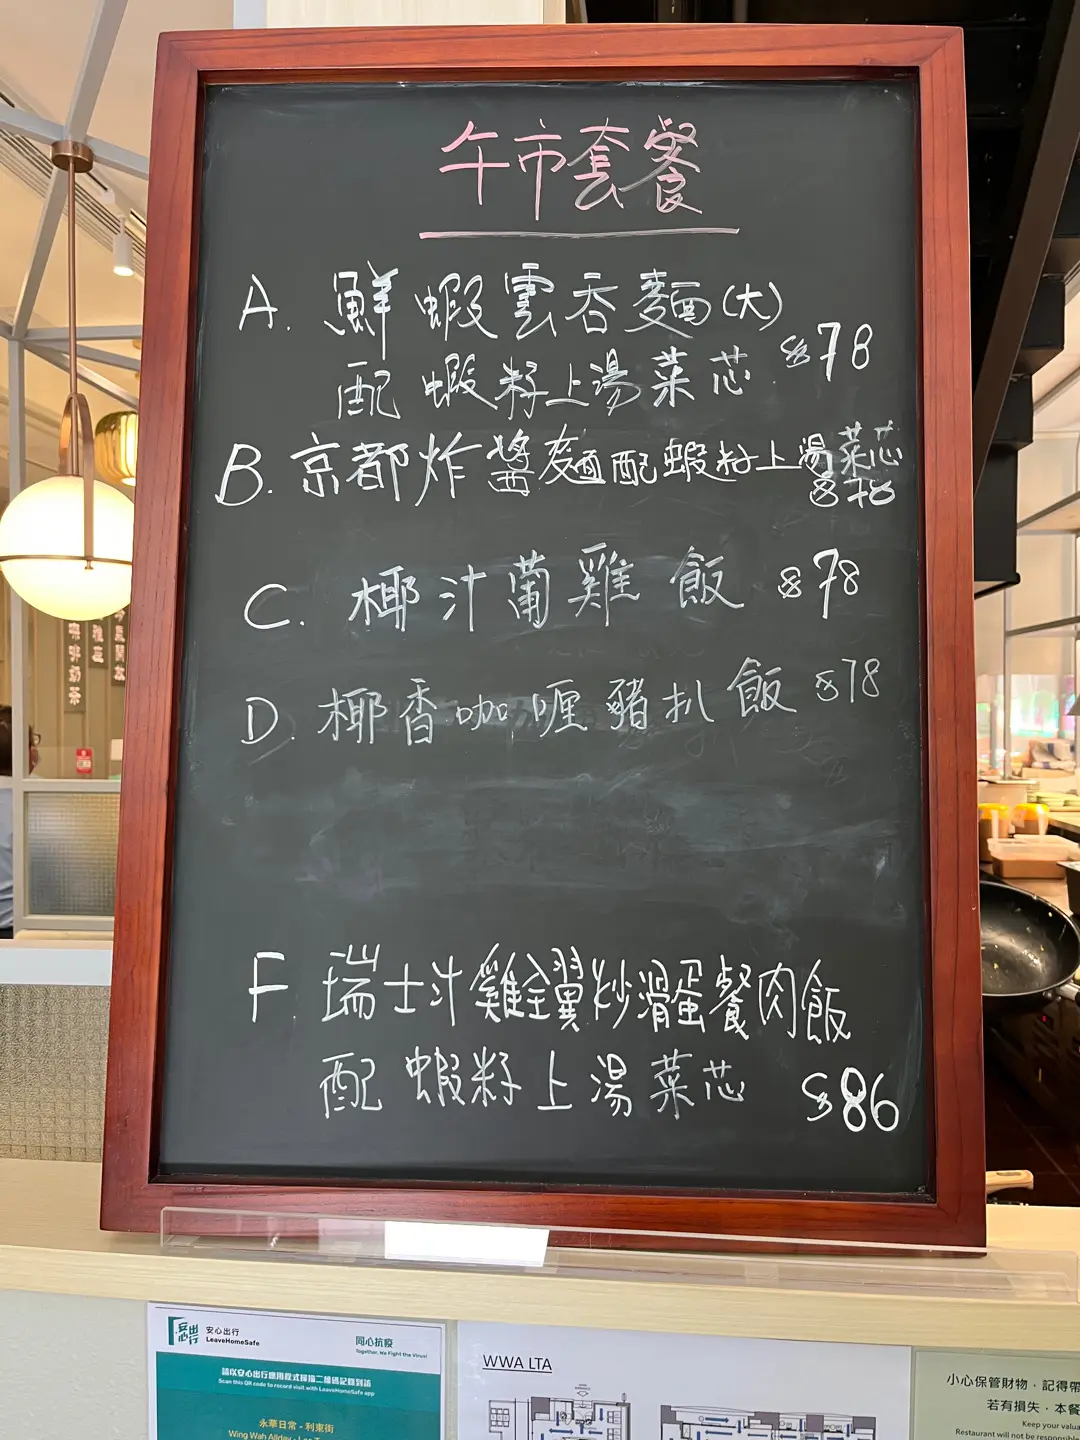 午市套餐
A. 鮮蝦雲吞麵(大)
配蝦籽上湯菜芯 $78
B. 京都炸醬麵配蝦籽上湯菜芯
$78
C. 椰汁葡雞飯 $78
D. 椰香咖喱豬扒飯 $78
F 瑞士汁雞全翼炒滑蛋餐肉飯
配蝦籽上湯菜芯 $86
安心出行
LeaveHomeSafe
同心抗疫
Together, We Fight the Virus!
請以安心出行應用程式掃描二維碼記錄到訪
Scan this QR code to record visit with LeaveHomeSafe app
永華日常 - 利東街
Wing Wah Allday -
WWA LTA
小心保管財物，記得帶
若有損失，本餐
Keep your
Restaurant will not be
咖啡奶茶